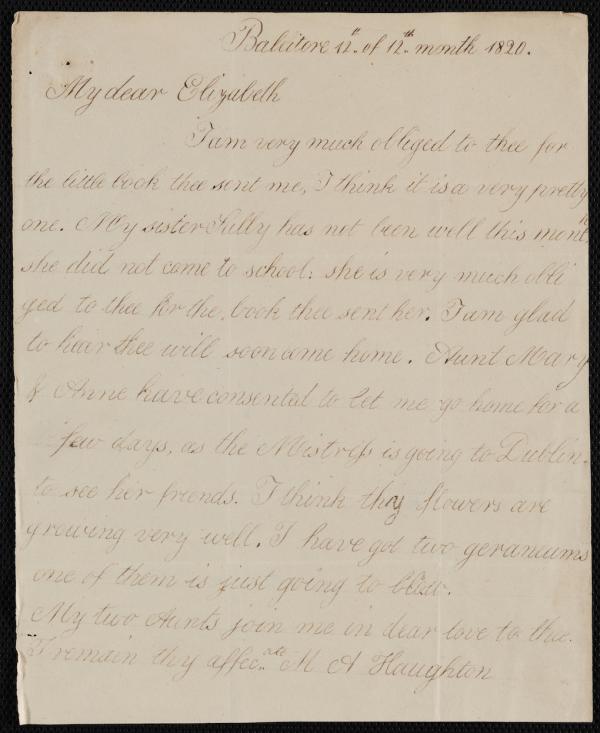 Balitore 12th of 12th month 1820.
My dear Elizabeth
I am very much obliged to thee for
the little book thee sent me, I think it is a very pretty
one. My sister Sally has not been well this month
she did not come to school: she is very much obli
ged to thee for the book thee sent her. I am glad
to hear thee will soon come home. Aunt Mary
& Anne have consented to let me go home for a
few days, as the Mistress is going to Dublin
to see her friends. I think thy flowers are
growing very well. I have got two geraniums
one of them is just going to blow.
My two Aunts join me in dear love to thee.
I remain thy affecate M A Haughton